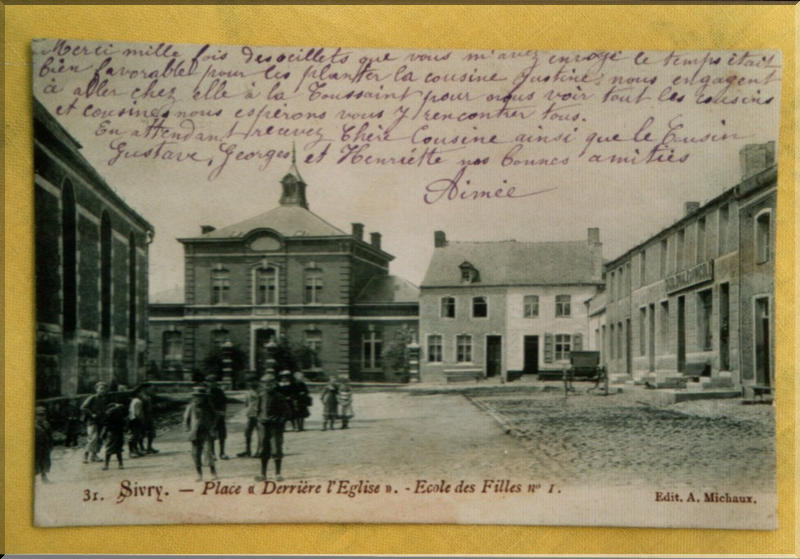 Merci mille fois des oeillets que vous m'avez envoyé le temps était
bien favorable pour les planter la cousine Justine, nous engagent
à aller chez elle à la Toussaint pour nous voir tout les cousins
et cousines nous espérons vous y rencontrer tous.
En attendant recevez Chère Cousine ainsi que le Cusin
Gustave, Georges et Henriette nos bonnes amitiés
Aimée
31. Sivry. — Place « Derrière l'Eglise ». - Ecole des Filles nº 1.
Edit. A. Michaux.